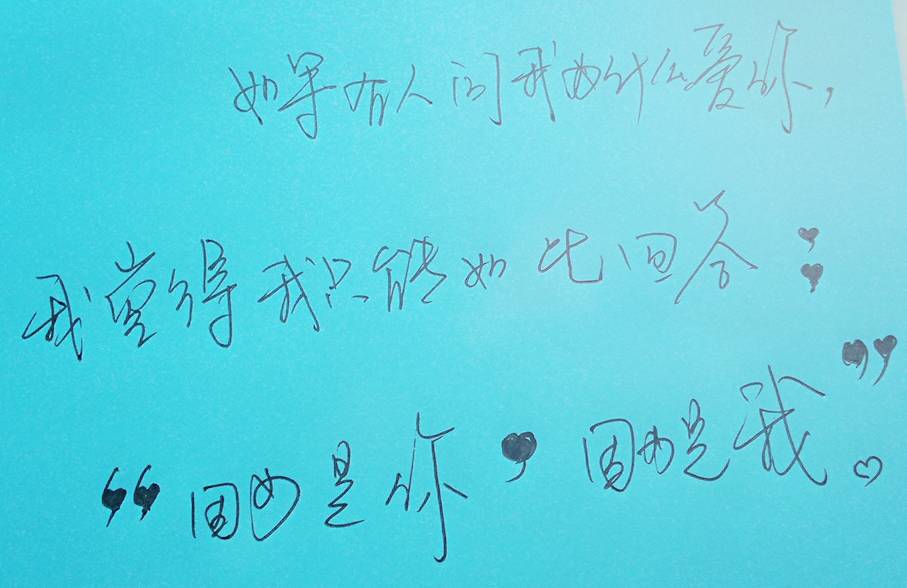 如果有人问我为什么爱你，
我觉得我只能如此回答：
“因为是你，因为是我”。